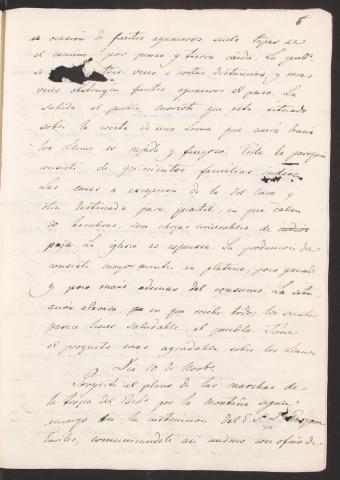 6
en ocasion de fuertes aguaceros suele taparse
el camino por penas y tierra caida. La
se veces a cortas distancias, y varias
veces obstruyen fuertes aguaceros el paso. La
subida al pueblo que esta situado
sobre la cresta de una loma que corre hacia
los llanos es rapida y fangosa. Toda la parroquia
consiste de quinientas familias indias.
Las casas a excepcion de la del Cura y
otra destinada para quartel, en que caben
50 hombres, son chozas miserables de
paja. La iglesia es espaciosa. La produccion
consiste mayormente en platano, poco ganado
y poco maiz ademas del consumo. La situ-
acion elevada, en que recibe todos los vientos
parece hacer saludable el pueblo. Tiene
el prospecto mas agradable sobre los llanos
Dia 10 de Novbe.
Prosegui el plano de las marchas de
la tropa del por la montaña segun
encargo en la instruccion del
comunicandole asi mismo con oficio de